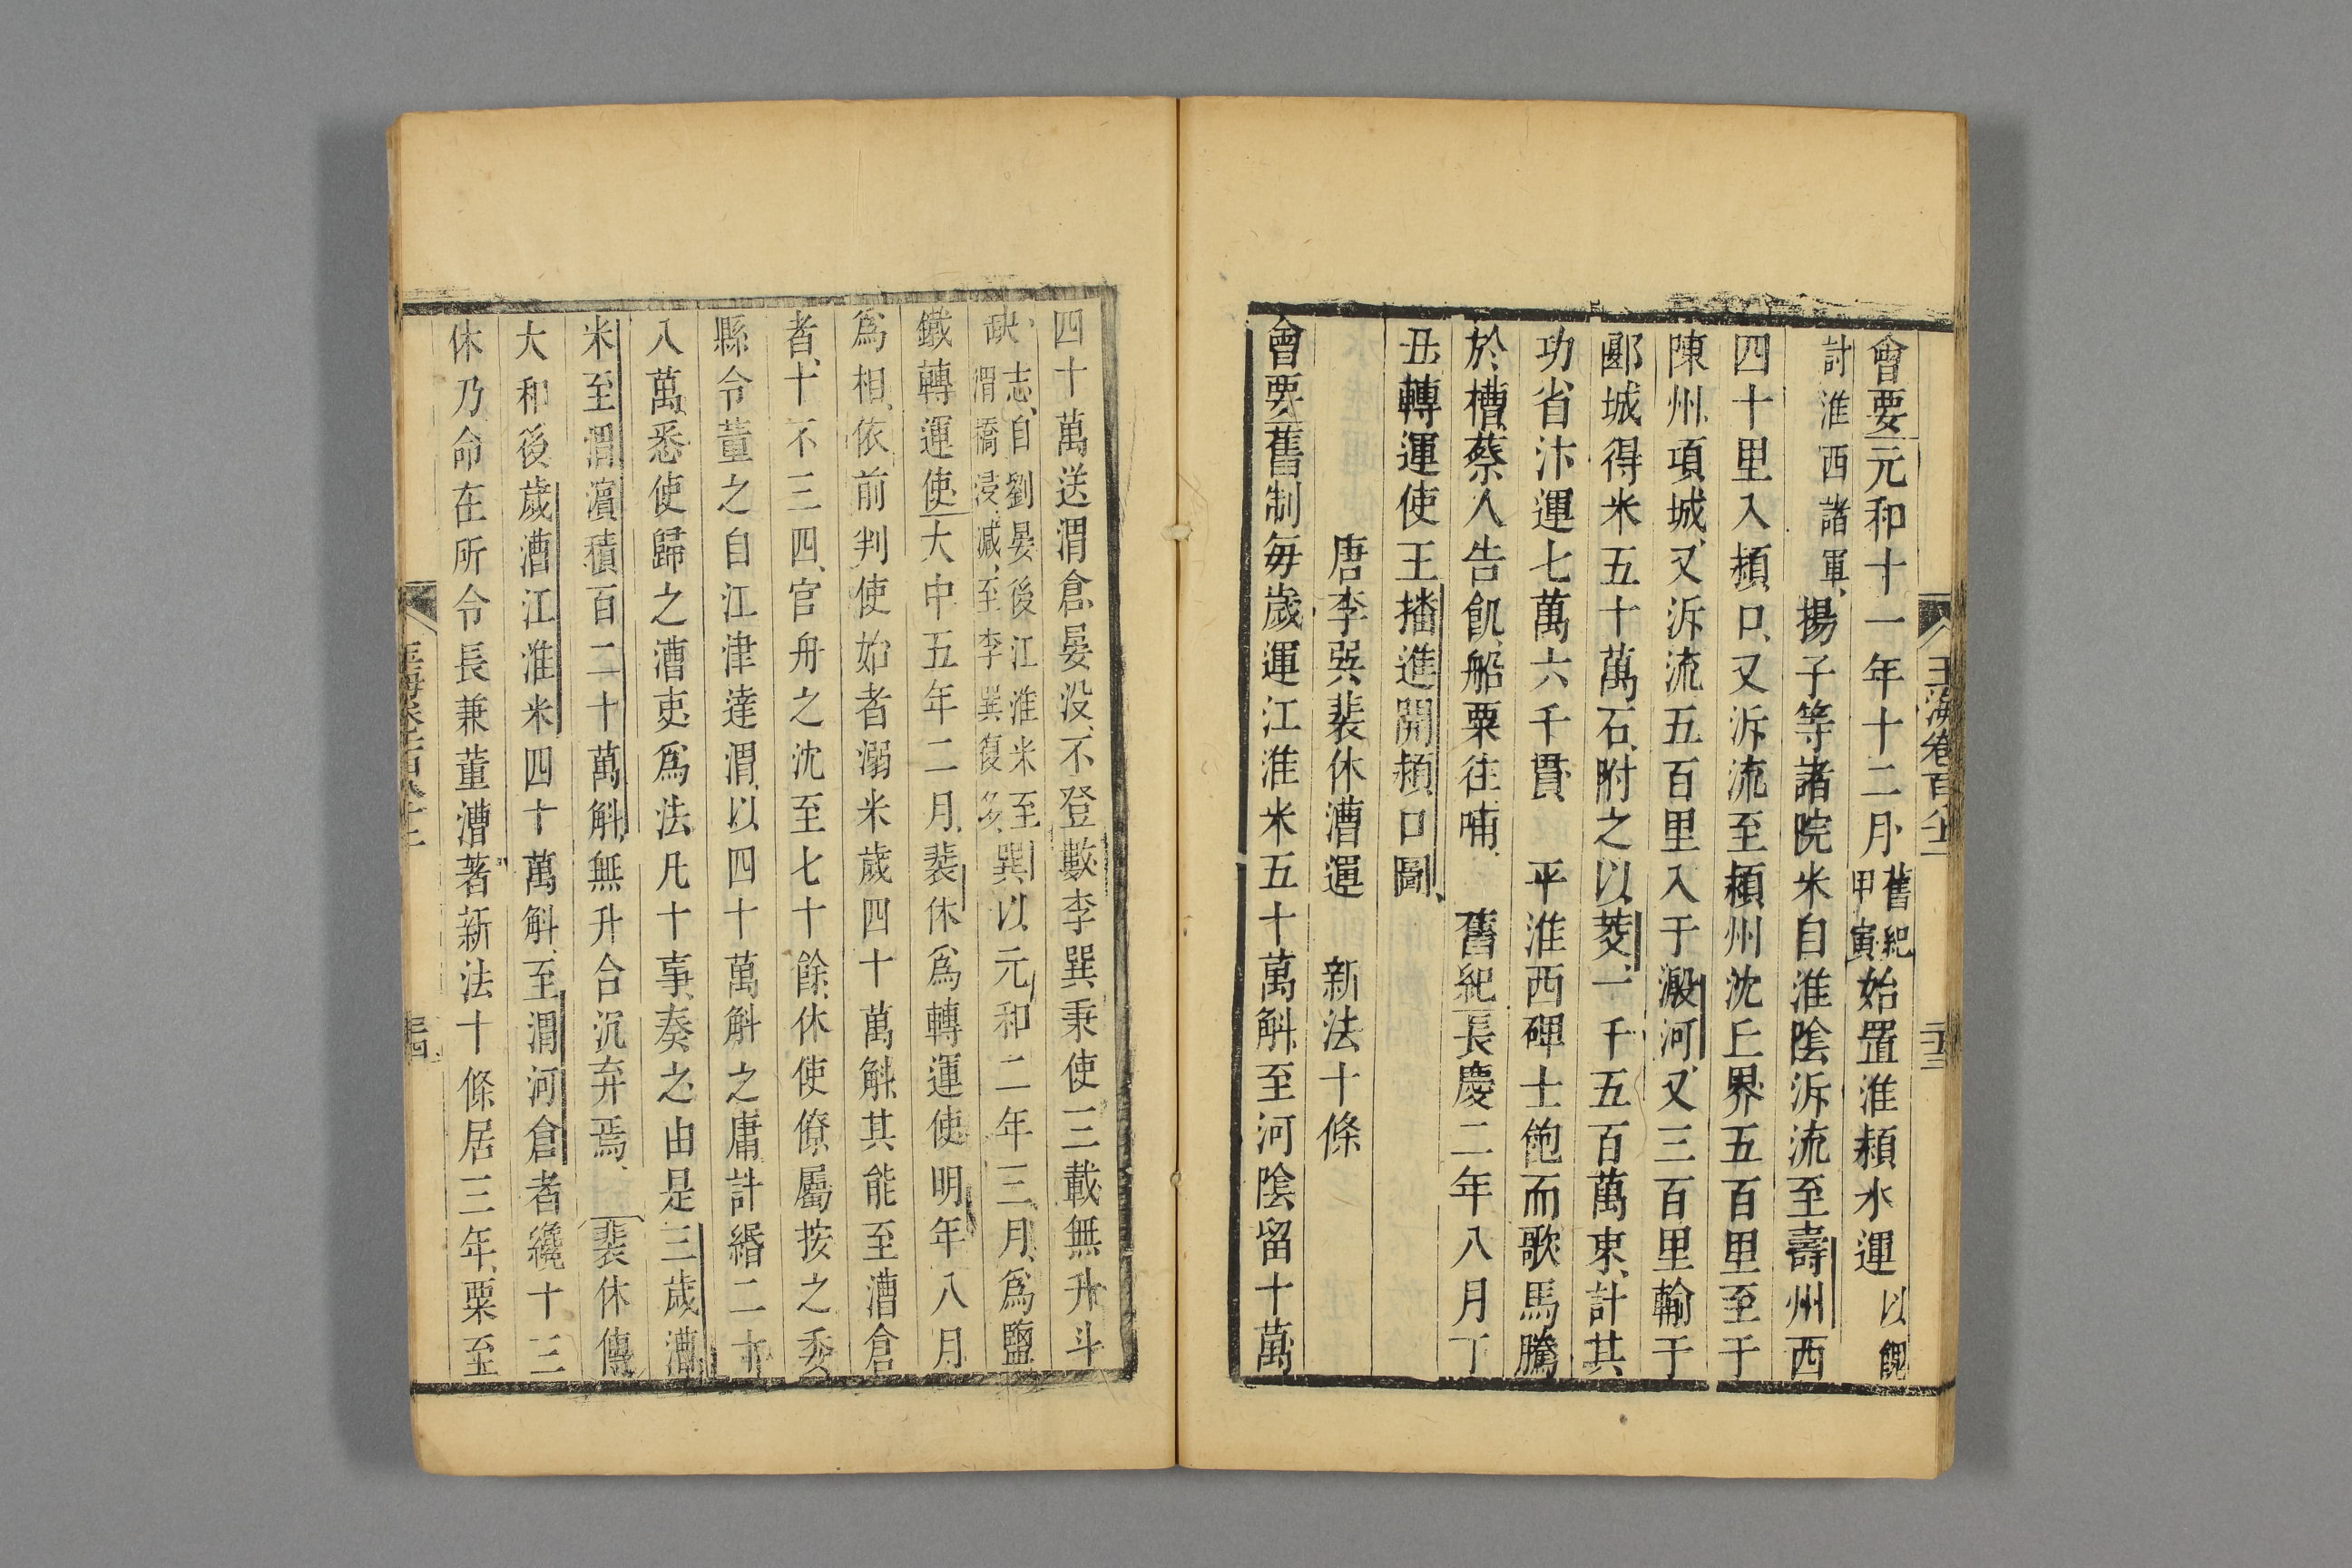 玉海卷百八十二
二十三
會要元和十一年十二月舊紀甲寅始置淮潁水運以餽
討淮西諸軍揚子等諸院米自淮陰泝流至壽州西
四十里入潁口又泝流至潁州沈丘界五百里至于
陳州項城又泝流五百里入于溵河又三百里輸于
郾城得米五十萬石附之以茭一千五百萬束計其
功省汴運七萬六千貫 平淮西碑士飽而歌馬騰
於槽蔡人告飢船粟往哺 舊紀長慶二年八月丁
丑轉運使王播進開潁口圖
唐李巽裴休漕運 新法十條
會要舊制每歲運江淮米五十萬斛至河陰留十萬
四十萬送渭倉晏没不登數李巽秉使三載無升斗
缺志自劉晏後江淮米至渭橋浸減至李巽復多巽以元和二年三月爲鹽
鐵轉運使大中五年二月裴休爲轉運使明年八月
爲相依前判使始者溺米歲四十萬斛其能至漕倉
者十不三四官舟之沈至七十餘休使僚屬按之委
縣令董之自江津達渭以四十萬斛之庸計緡二十
八萬悉使歸之漕吏爲法凡十事奏之由是三歲漕
米至渭濵積百二十萬斛無升合沉弃焉 裴休傳
大和後歲漕江淮米四十萬斛至渭河倉者纔十三
休乃命在所令長兼董漕著新法十條居三年粟至